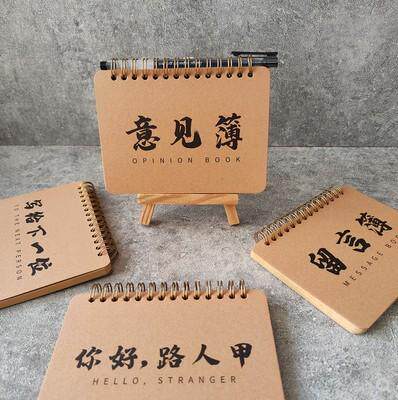 意见簿
OPINION BOOK
写给下一位
TO THE NEXT PERSON
留言簿
MESSAGE BOOK
你好,路人甲
HELLO, STRANGER